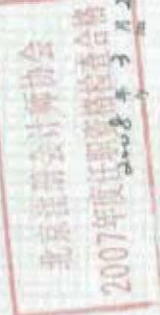 北京注册会计师协会
2007年度任职资格检查合格
2008年3月2